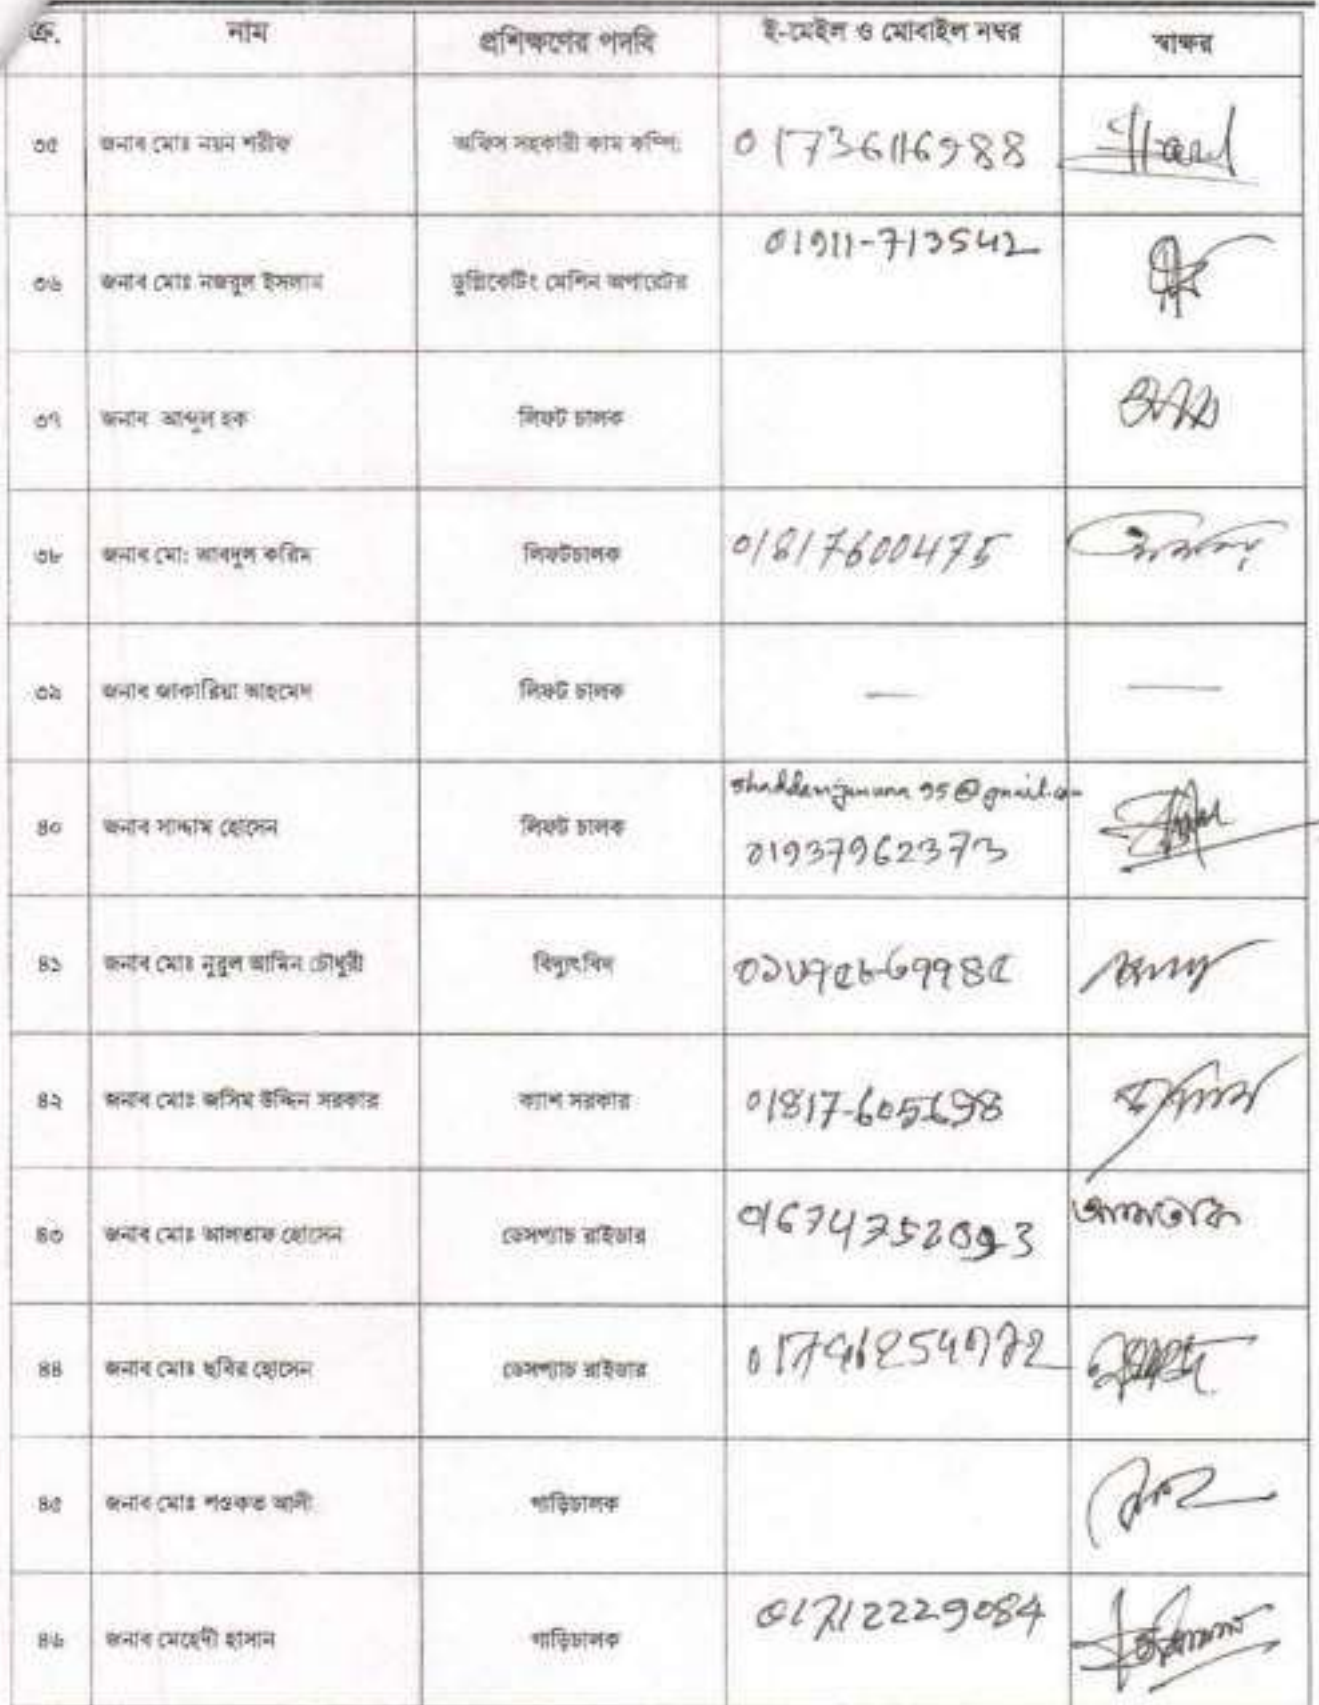 ক্র. নাম প্রশিক্ষণের পদবি ই-মেইল ও মোবাইল নম্বর স্বাক্ষর
৩৫ জনাব মোঃ নয়ন শরীফ অফিস সহকারী কাম কম্পি: 01736116988
৩৬ জনাব মোঃ নজরুল ইসলাম ডুপ্লিকেটিং মেশিন অপারেটর 01911-713542
৩৭ জনাব আব্দুল হক লিফট চালক
৩৮ জনাব মো: আবদুল করিম লিফটচালক 01817600475
৩৯ জনাব জাকারিয়া আহমেদ লিফট চালক — —
৪০ জনাব সাদ্দাম হোসেন লিফট চালক
01937962373
৪১ জনাব মোঃ নুরুল আমিন চৌধুরী বিদ্যুৎবিদ
৪২ জনাব মোঃ জসিম উদ্দিন সরকার ক্যাশ সরকার 01817-605698
৪৩ জনাব মোঃ আলতাফ হোসেন ডেসপ্যাচ রাইডার আলতাফ
৪৪ জনাব মোঃ ছবির হোসেন ডেসপ্যাচ রাইডার
৪৫ জনাব মোঃ শওকত আলী গাড়িচালক
৪৬ জনাব মেহেদী হাসান গাড়িচালক 01712229084